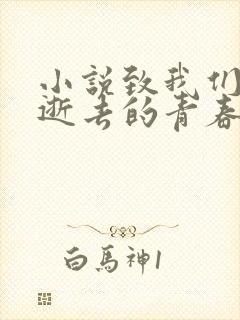 小說致我们
逝去的青春
白馬神1